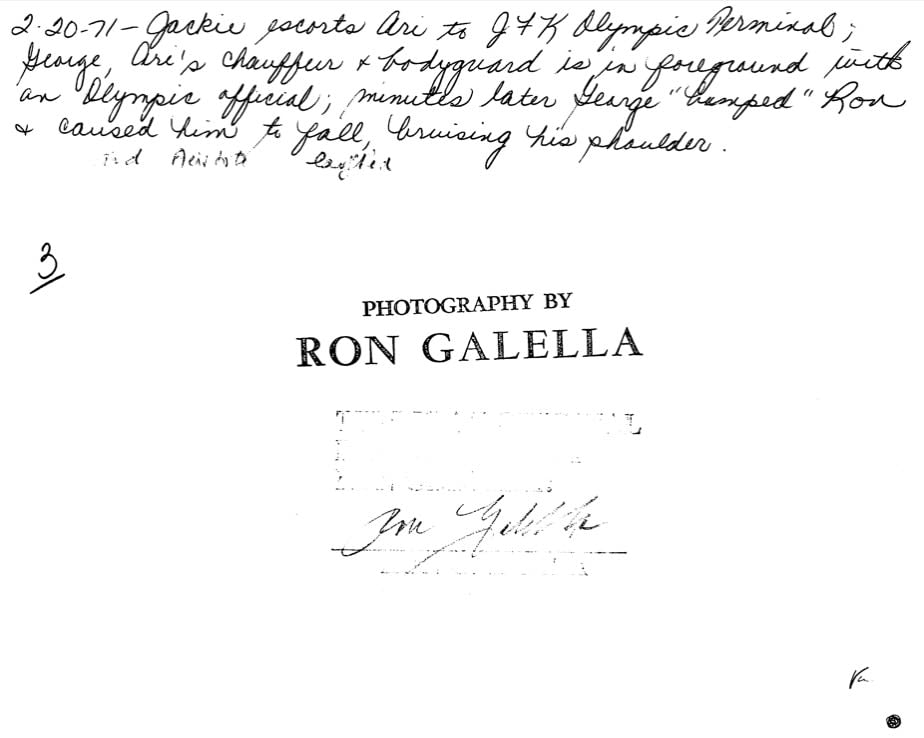 2-20-71 - Jackie escorts Ari to JFK Olympic Terminal;
George, Ari's chauffeur & bodyguard is in foreground with
an Olympic official; minutes later George "bumped" Ron
& caused him to fall, bruising his shoulder.
3
PHOTOGRAPHY BY
RON GALELLA
Ron Galella